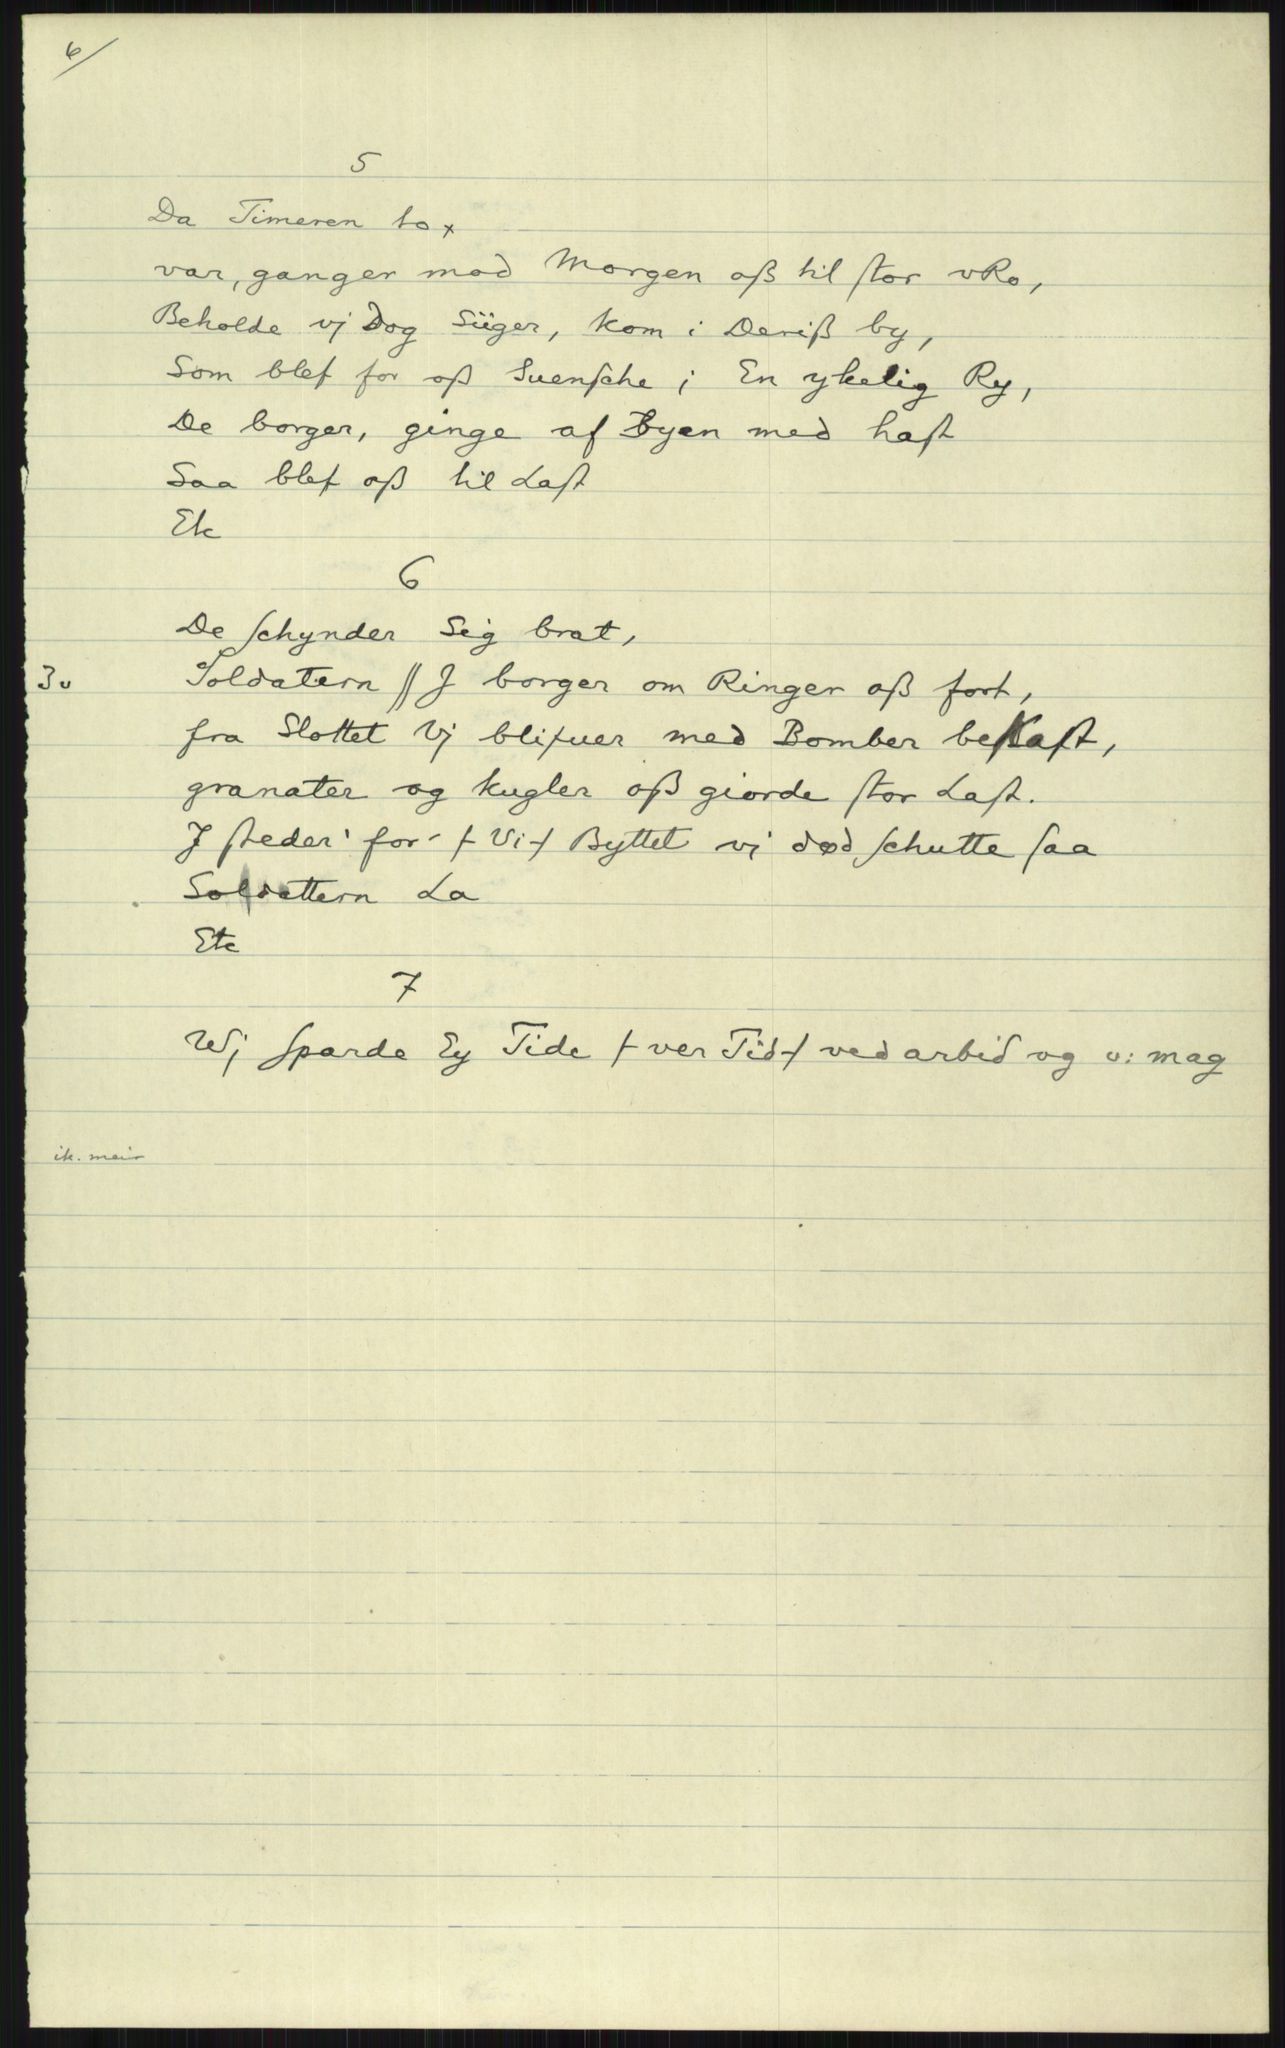 6/
5
Da Timeren to ×
var, ganger mod Morgen oß til ſtor vRo,
Beholde vj Dog Siiger, kom i Deriß by,
Som blef for oß Suenſche i En ykelig Ry,
De borger, ginge af Byen med haſt
Saa blef oß til Laſt
Etc
6
De ſchynder Sig brat,
3v Soldatern // J borger om Ringer oß fort,
fra Slottet Vj blifuer med Bomber beKaſt,
granater og kugler oß giorde ſtor Laſt.
J ſteder' for- ⁒ Vi ⁒ Byttet vj død ſchutte ſaa
Soldattern La
Etc
7
Wj ſparde Ey Tide ⁒ ver Tid ⁒ ved arbid og v: mag
ik. meir